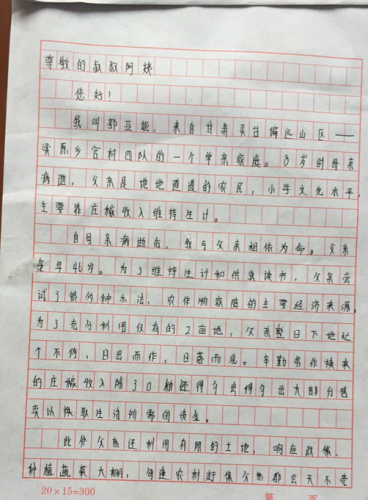 尊敬的叔叔阿姨
您好!
我叫郭芸艳,来自甘肃灵台偏远山区——
梁原乡官村西队的一个单亲家庭。8岁时母亲
病逝,父亲是地地道道的农民,小学文化水平,
主要靠庄稼收入维持生计。
自母亲病逝后,我与父亲相依为命。父亲
今年46岁。为了维持生计和供我读书,父亲尝
试了很多种办法。农作物家庭的主要经济来源,
为了充分利用仅有的2亩地,父亲整日下地忙
个不停,日出而作,日落而息。辛勤劳作换来
的庄稼收入除了口粮还得分出得分出大部分售
卖以换取生活所需的资金。
此外父亲还利用有限的土地,响应政策,
种植蔬菜大棚,每逢农村赶集父亲都会天不亮
20×15=300
第 页